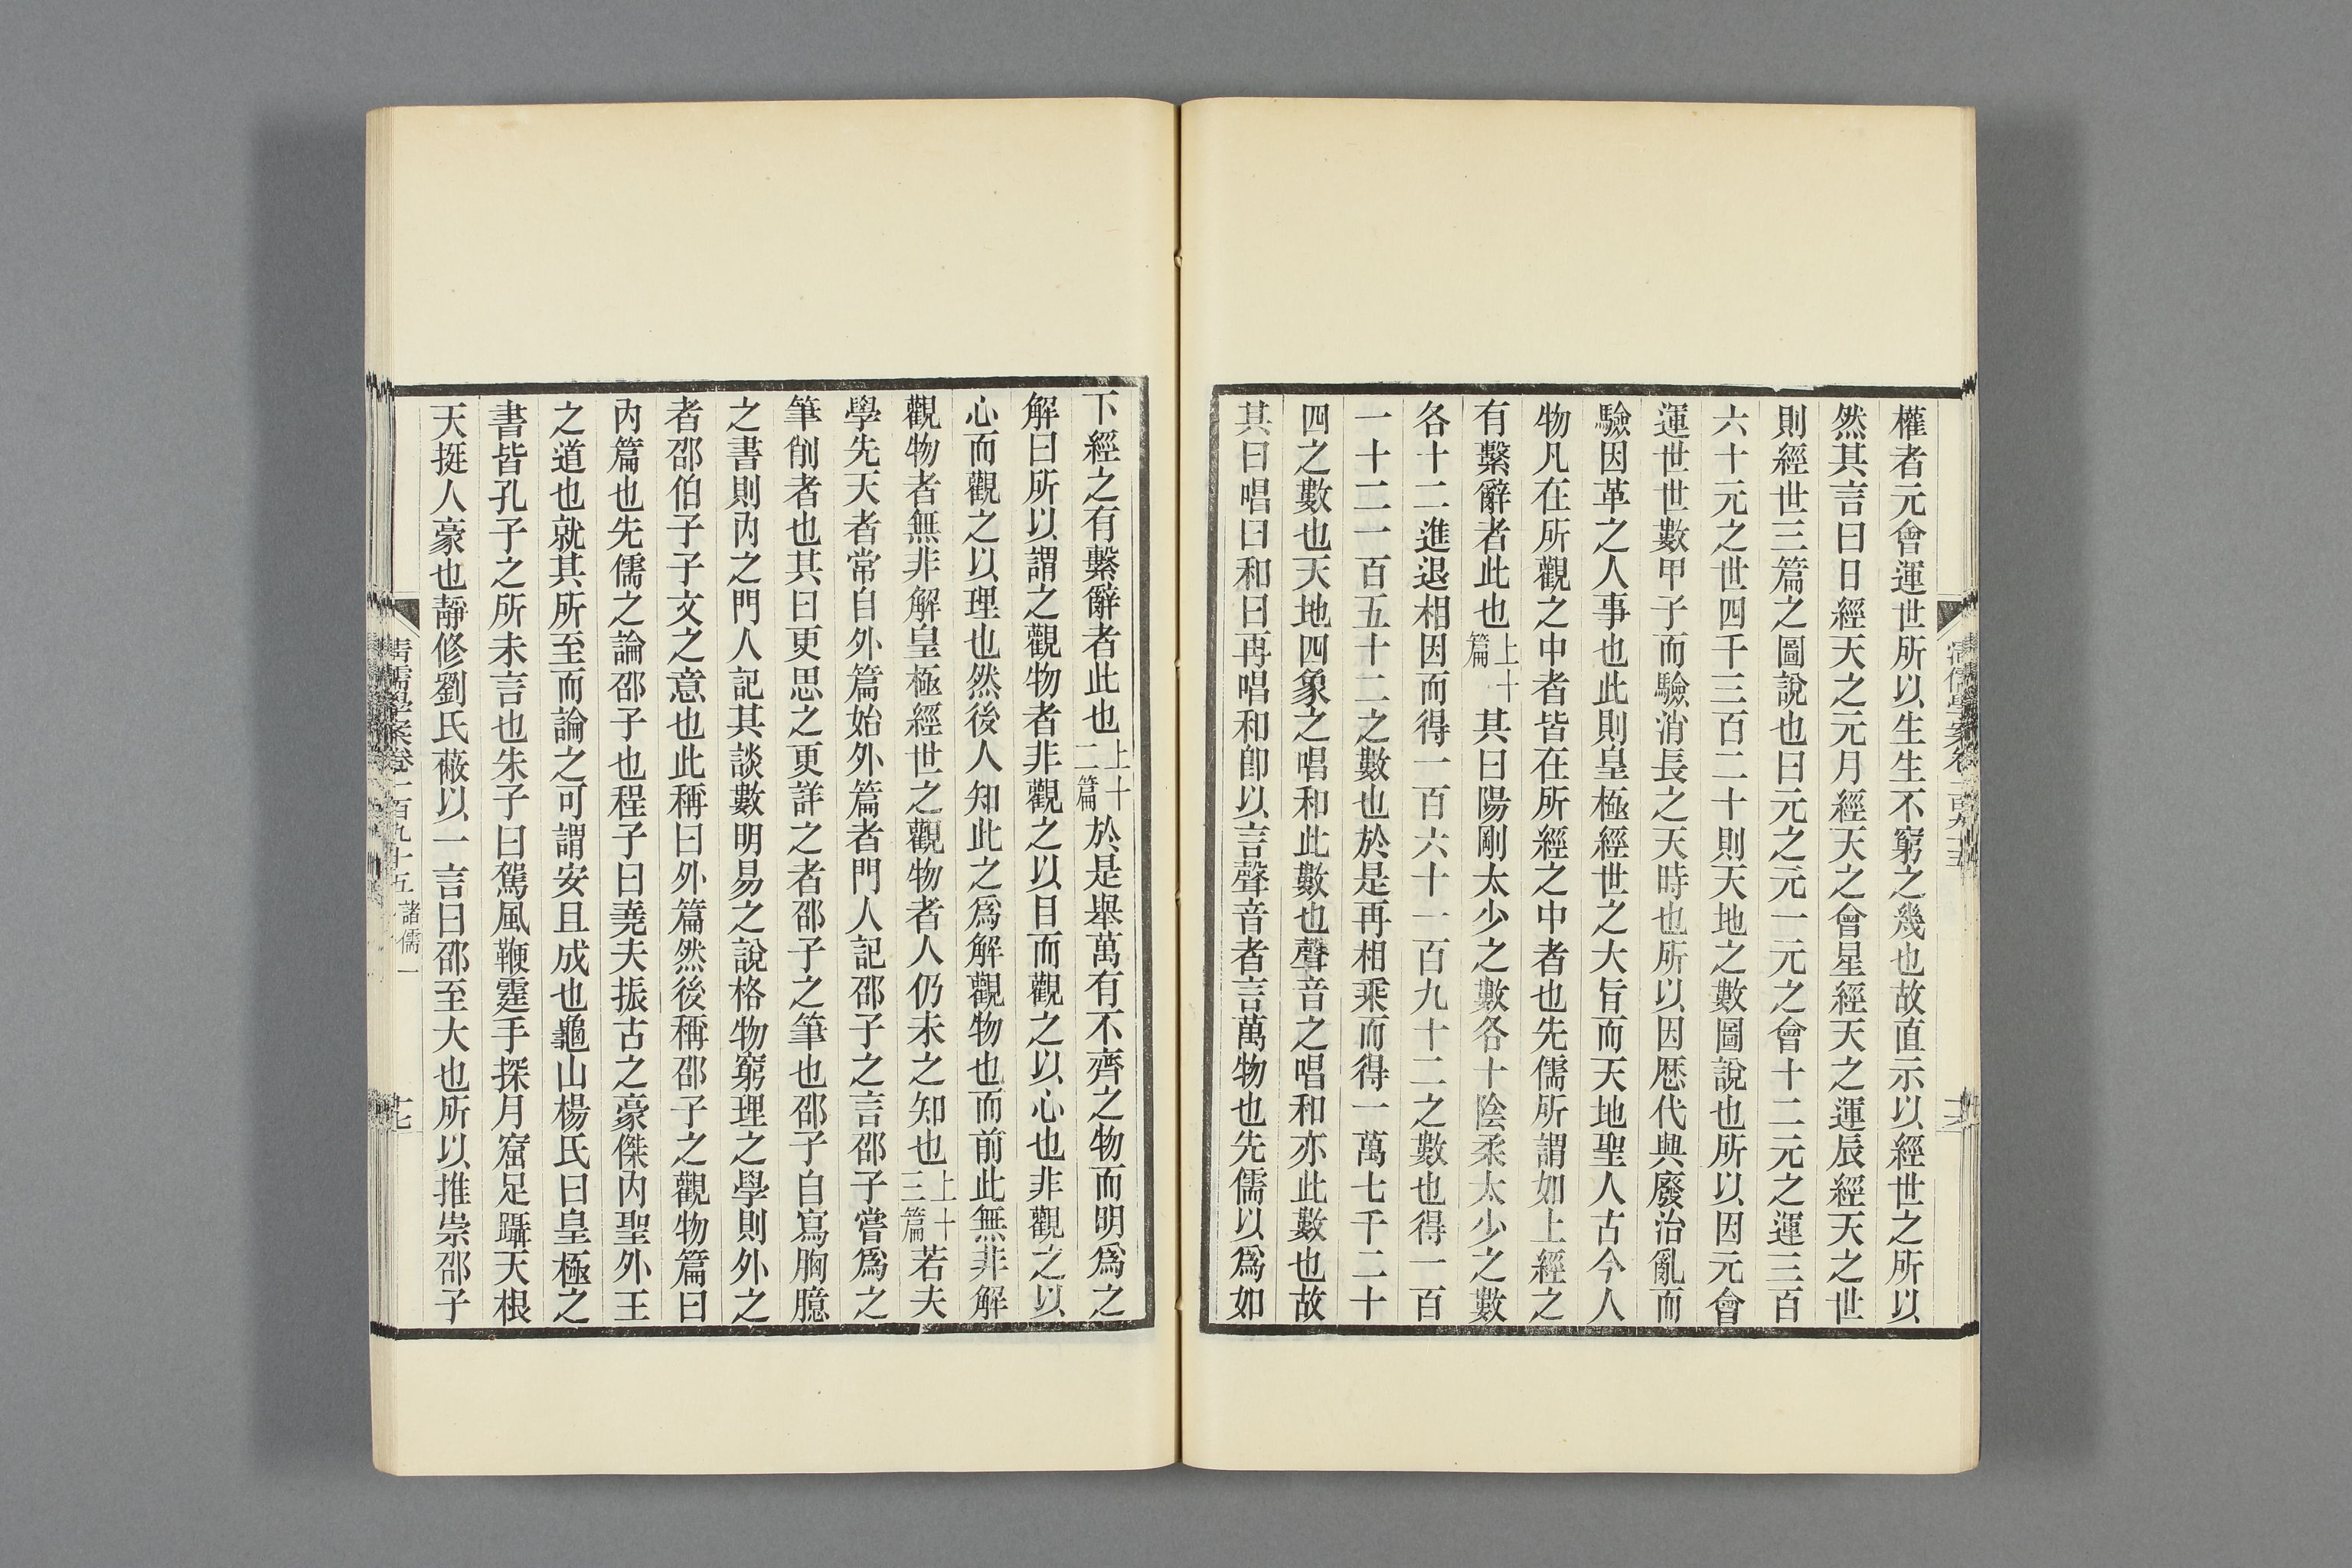 權者元會運世所以生生不窮之幾也故直示以經世之所以
然其言曰日經天之元月經天之會星經天之運辰經天之世
則經世三篇之圖說也曰元之元一元之會十二元之運三百
六十元之世四千三百二十則天地之數圖說也所以因元會
運世世數甲子而驗消長之天時也所以因歷代興廢治亂而
驗因革之人事也此則皇極經世之大旨而天地聖人古今人
物凡在所觀之中者皆在所經之中者也先儒所謂如上經之
有繫辭者此也上十篇其曰陽剛太少之數各十陰柔太少之數
各十二進退相因而得一百六十一百九十二之數也得一百
一十二一百五十二之數也於是再相乘而得一萬七千二十
四之數也天地四象之唱和此數也聲音之唱和亦此數也故
其曰唱曰和曰再唱和卽以言聲音者言萬物也先儒以爲如
下經之有繫辭者此也上十二篇於是舉萬有不齊之物而明爲之
解曰所以謂之觀物者非觀之以目而觀之以心也非觀之以
心而觀之以理也然後人知此之爲解觀物也而前此無非解
觀物者無非解皇極經世之觀物者人仍未之知也上十三篇若夫
學先天者常自外篇始外篇者門人記邵子之言邵子嘗爲之
筆削者也其曰更思之更詳之者邵子之筆也邵子自寫胸臆
之書則內之門人記其談數明易之說格物窮理之學則外之
者邵伯子子文之意也此稱曰外篇然後稱邵子之觀物篇曰
內篇也先儒之論邵子也程子曰堯夫振古之豪傑內聖外王
之道也就其所至而論之可謂安且成也龜山楊氏曰皇極之
書皆孔子之所未言也朱子曰駕風鞭霆手探月窟足躡天根
天挺人豪也靜修劉氏蔽以一言曰邵至大也所以推崇邵子
清儒學案卷一百九十五 諸儒一
十七